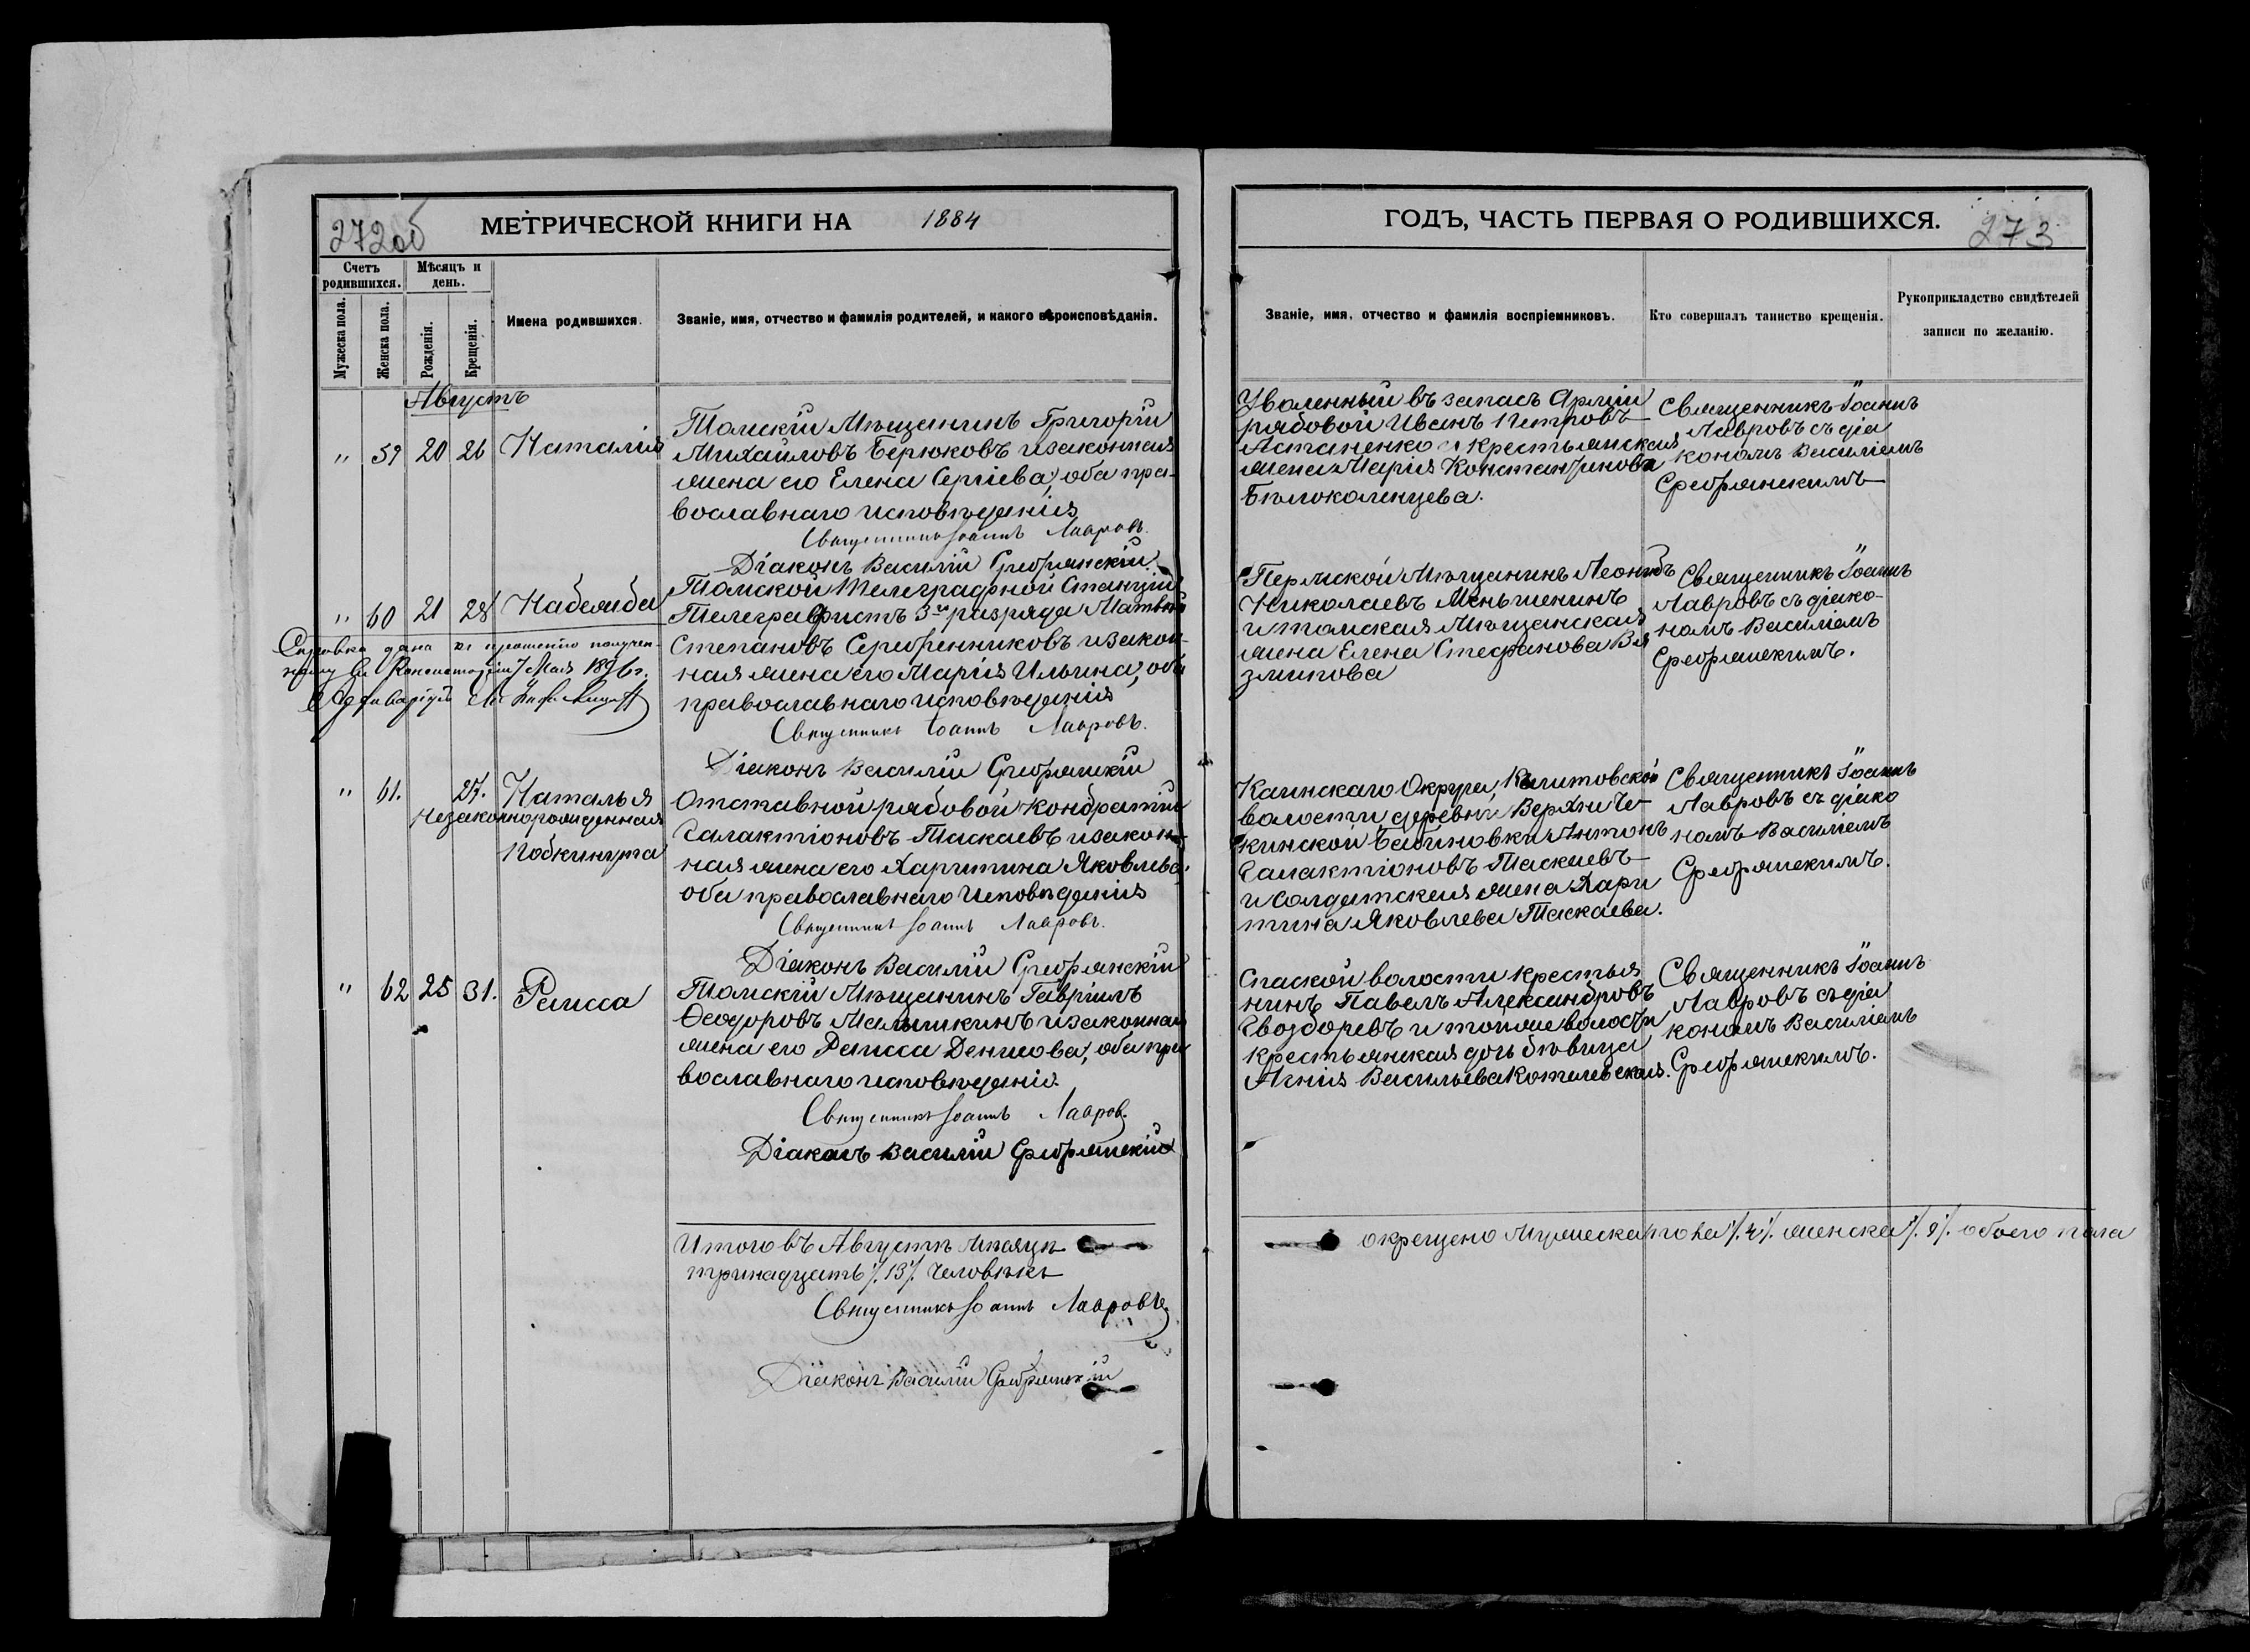 272об
МЕТРИЧЕСКОЙ КНИГИ НА 1884
Счетъ родившихся.
Мѣсяцъ и день.
Мужеска пола.
Женска пола.
Рожденія.
Крещенія.
Имена родившихся.
Званіе, имя, отчество и фамилія родителей, и какого вѣроисповѣданія.
Августъ
" 59 20 26 Наталія
Томскій Мѣщанинъ Григорій
Михайловъ Берюковъ и законная
жена его Елена Сергіева, оба пра-
вославнаго исповѣданія
Священникъ Іоаннъ Лавровъ.
Діаконъ Василій Сребрянскій.
" 60 21 28 Надежда
Томской Телеграфной Станціи
Телеграфистъ 3го разряда Матвѣй
Степановъ Серебренниковъ и закон-
ная жена его Марія Ильина, оба
православнаго исповѣданія
Священникъ Іоаннъ Лавровъ.
Діаконъ Василій Сребрянскій
Справка дана по прошенію получен-
ному въ Консисторіи 7 Мая 1896 г.
" 61. 27. Наталья
Незаконнорожденная
Подкинута
Отставной рядовой Кондратій
Галактіоновъ Таскаевъ и закон-
ная жена его Харитина Яковлева,
оба православнаго Исповѣданія
Священникъ Іоаннъ Лавровъ.
Діаконъ Василій Сребрянскій
" 62 25 31. Раисса
Томскій Мѣщанинъ Гавріилъ
Ѳеодоровъ Малышкинъ и законная
жена его Раисса Денисова, оба пра
вославнаго исповѣданія.
Священникъ Іоаннъ Лавров.
Діаконъ Василій Сребрянскій
Итого въ Августѣ мѣсяцѣ
тринадцать /.13/. человѣкъ
Священникъ Іоаннъ Лавровъ
Діаконъ Василій Сребрянскій
ГОДЪ, ЧАСТЬ ПЕРВАЯ О РОДИВШИХСЯ.
273
Званіе, имя, отчество и фамилія воспріемниковъ.
Кто совершалъ таинство крещенія.
Рукоприкладство свидѣтелей записи по желанію.
Уволенный въ запасъ Арміи
рядовой Иванъ Петровъ
Астаненко и крестьянская
жена Марія Константинова
Бѣлоколенцева.
Священникъ Іоаннъ
Лавровъ съ діа
кономъ Василіемъ
Сребрянскимъ
Пермской Мѣщанинъ Леонидъ
Николаевъ Меньшенинъ
и томская Мѣщанская
жена Елена Стефанова Вя
змикова
Священникъ Іоаннъ
Лавровъ съ діако-
номъ Василіемъ
Сребрянскимъ.
Каинскаго Округа,
волости деревни
Антонъ
Галактіоновъ Таскаевъ
и Солдатская жена Хари
тина Яковлева Таскаева.
Священникъ Іоаннъ
Лавровъ съ діако
номъ Василіемъ
Сребрянскимъ.
Спаской волости крестья
нинъ Павелъ Александровъ
Гвоздоревъ и тойже волости
крестьянская дочь дѣвица
Акнія Васильева Котелевская.
Священникъ Іоаннъ
Лавровъ съ діа
кономъ Василіемъ
Сребрянскимъ.
окрещено Мужеска пола /.4/. женска /.9/. обоего пола